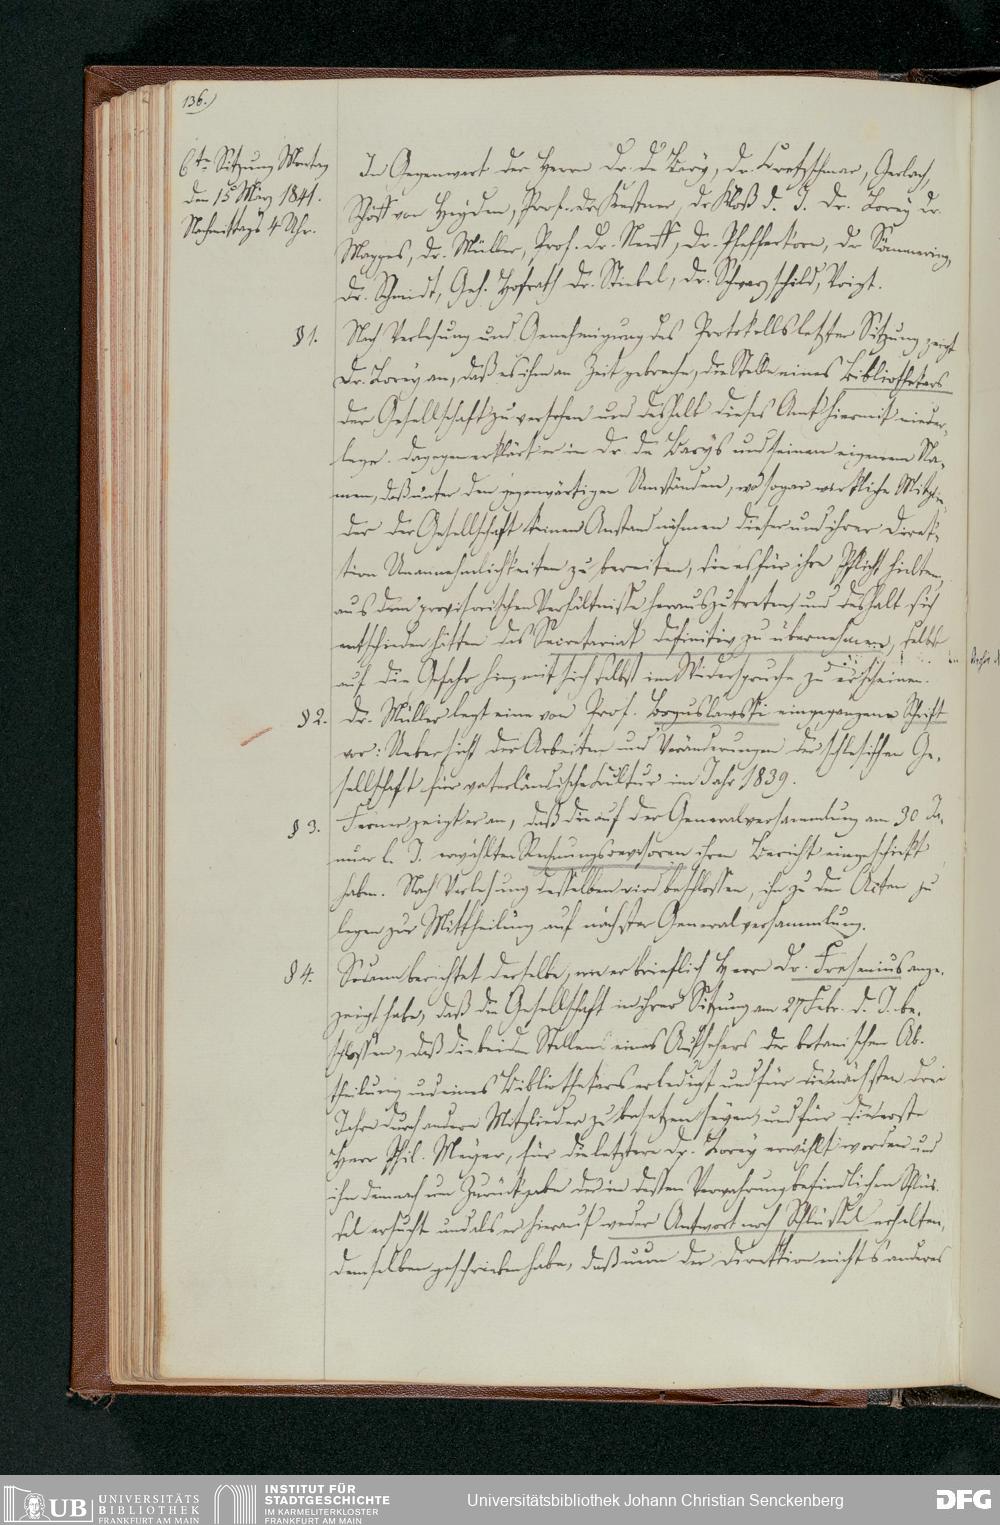 136.)
6te Sitzung Montag
den 15 März 1841.
Nachmittags 4 Uhr.
In Gegenwart der Herrn Dr. de Bary, Dr. Cretzschmar, Gerlach,
Schöff von Heyden, Prof. Dr. Kestner, Dr. Kloß d. J. Dr. Lorey Dr.
Mappes, Dr. Müller, Prof. Dr. Neeff, Dr. Pfefferkorn, Dr Sömmering,
Dr. Schmidt, Geh. Hofrath Dr. Stiebel, Dr. Schwarzschild, Voigt.
§ 1. Nach Verlesung und Genehmigung des Protokolls letzter Sitzung zeigt
Dr. Lorey an, daß es ihm an Zeit gebreche, die Stelle eines Bibliothekars
der Gesellschaft zu versehen und deshalb dieses Amt hiermit nieder-
lege. dagegen erklärt er in Dr. de Barys und seinem eigenem Na-
men, daß unter den gegenwärtigen Umständen, wo sogar wirkliche Mitglie-
der der Gesellschaft keinen Anstand nähmen dieser und ihrer Direk-
tion Unannehmlichkeiten zu bereiten, sie es für ihre Pflicht hielten
aus dem provisorischen Verhältnisse herauszutreten und deshalb sich
entschieden hätten das Secretariat definitiv zu übernehmen, selbst
auf die Gefahr hin, mit sich selbst im Widerspruche zu erscheinen.
§ 2. Dr. Müller legt eine von Prof. Boguslawski eingegangene Schrift
vor: Uebersicht der Arbeiten und Veränderungen der schlesischen Ge-
sellschaft für vaterländische Cultur im Jahr 1839.
§ 3. Ferner zeigt er an, daß die auf der Generalversammlung am 30 Ja-
nuar l. J. erwählten Rechnungsrevisoren ihren Bericht eingeschickt
haben. Nach Verlesung desselben wird beschlossen, ihn zu den Acten zu
legen zur Mittheilung auf nächster Generalversammlung.
§ 4. Sodann berichtet derselbe, wie er brieflich Herrn Dr. Fresenius ange-
zeigt habe, daß die Gesellschaft in ihrer Sitzung am 27 Febr. d. J. be-
schlossen, daß die beiden Stellen eines Aufsehers der botanischen Ab-
theilung und eines Bibliothekars erledigt und für die nächsten drei
Jahre durch andere Mitglieder zu besetzen seyen, und für die erste
Herr Phil. Meyer, für die letztere Dr. Lorey erwählt worden und
ihn demnach um Zurückgabe der in dessen Verwahrung befindlichen Schlüs-
sel ersucht und als er hierauf weder Antwort noch Schlüssel erhalten,
demselben geschrieben habe, daß nun der Direktion nichts anderes
UB UNIVERSITÄTS
BIBLIOTHEK
FRANKFURT AM MAIN
INSTITUT FÜR
STADTGESCHICHTE
IM KARMELITERKLOSTER
FRANKFURT AM MAIN
Universitätsbibliothek Johann Christian Senckenberg
DFG